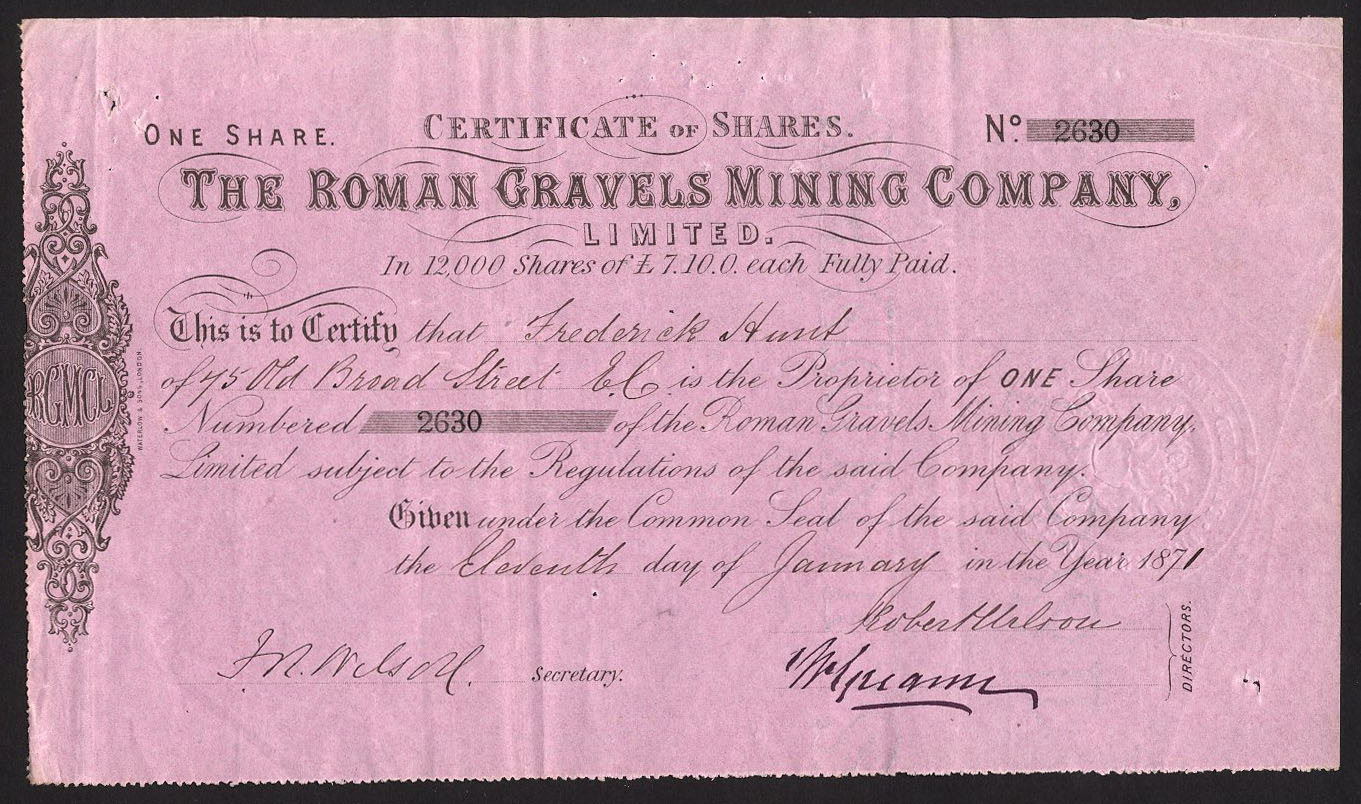 ONE SHARE.
CERTIFICATE OF SHARES.
No. 2630
THE ROMAN GRAVELS MINING COMPANY,
LIMITED.
In 12,000 Shares of £7.10.0. each Fully Paid.
This is to Certify that Frederick Hunt
of 75 Old Broad Street E.C. is the Proprietor of ONE Share
Numbered 2630 of the Roman Gravels Mining Company,
Limited subject to the Regulations of the said Company.
Given under the Common Seal of the said Company
the Eleventh day of January in the Year 1871
Robert Wilson
J. N. Wilson. Secretary.
DIRECTORS.
RGMCL
WATERLOW & SONS, LONDON.